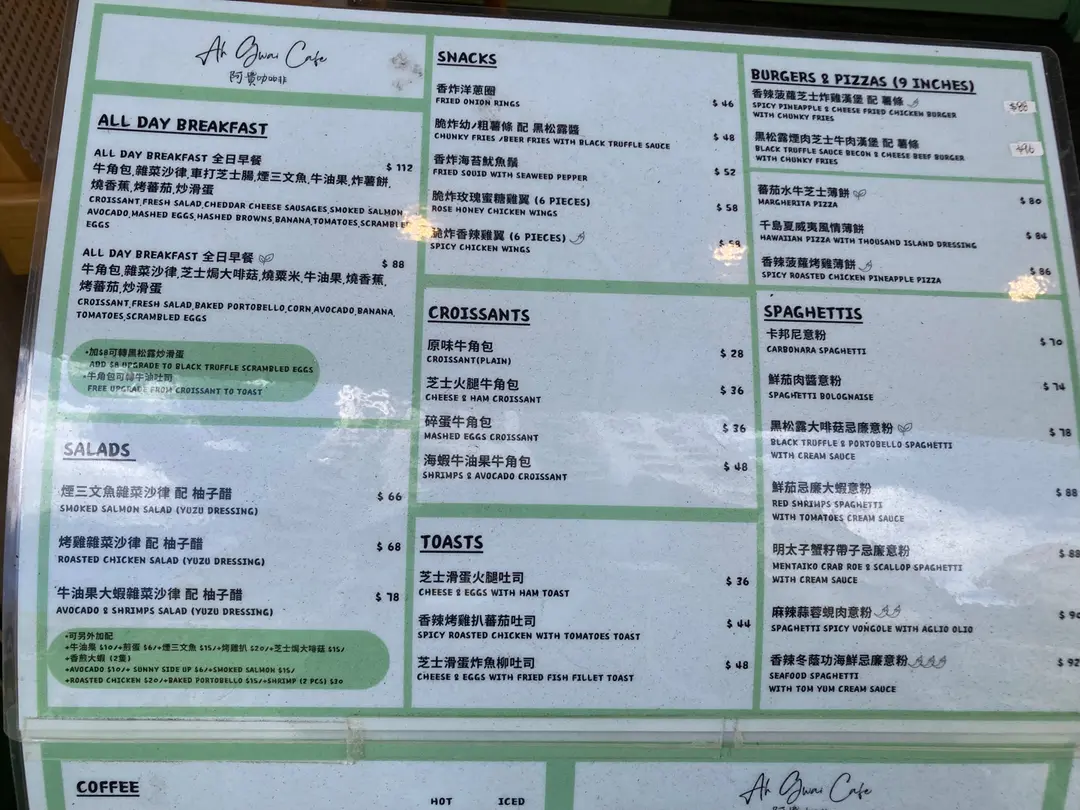 Ah Gwai Cafe
阿貴咖啡
ALL DAY BREAKFAST
ALL DAY BREAKFAST 全日早餐 $ 112
牛角包,雜菜沙律,車打芝士腸,煙三文魚,牛油果,炸薯餅,
燒香蕉,烤蕃茄,炒滑蛋
CROISSANT,FRESH SALAD,CHEDDAR CHEESE SAUSAGES,SMOKED SALMON,
AVOCADO,MASHED EGGS,HASHED BROWNS,BANANA,TOMATOES,SCRAMBLED
EGGS
ALL DAY BREAKFAST 全日早餐 $ 88
牛角包,雜菜沙律,芝士焗大啡菇,燒粟米,牛油果,燒香蕉,
烤蕃茄,炒滑蛋
CROISSANT,FRESH SALAD,BAKED PORTOBELLO,CORN,AVOCADO,BANANA,
TOMATOES,SCRAMBLED EGGS
•加$8可轉黑松露炒滑蛋
ADD $8 UPGRADE TO BLACK TRUFFLE SCRAMBLED EGGS
•牛角包可轉牛油吐司
FREE UPGRADE FROM CROISSANT TO TOAST
SALADS
煙三文魚雜菜沙律 配 柚子醋 $ 66
SMOKED SALMON SALAD (YUZU DRESSING)
烤雞雜菜沙律 配 柚子醋 $ 68
ROASTED CHICKEN SALAD (YUZU DRESSING)
牛油果大蝦雜菜沙律 配 柚子醋 $ 78
AVOCADO & SHRIMPS SALAD (YUZU DRESSING)
•可另外加配
+牛油果 $10/+煎蛋 $6/+煙三文魚 $15/+烤雞扒 $20/+芝士焗大啡菇 $15/
+香煎大蝦 (2隻)
+AVOCADO $10/+ SUNNY SIDE UP $6/+SMOKED SALMON $15/
+ROASTED CHICKEN $20/+BAKED PORTOBELLO $15/+SHRIMP (2 PCS) $30
SNACKS
香炸洋蔥圈
FRIED ONION RINGS $ 46
脆炸幼/粗薯條 配 黑松露醬
CHUNKY FRIES /BEER FRIES WITH BLACK TRUFFLE SAUCE $ 48
香炸海苔魷魚鬚
FRIED SQUID WITH SEAWEED PEPPER $ 52
脆炸玫瑰蜜糖雞翼 (6 PIECES)
ROSE HONEY CHICKEN WINGS $ 58
脆炸香辣雞翼 (6 PIECES)
SPICY CHICKEN WINGS $ 58
CROISSANTS
原味牛角包
CROISSANT(PLAIN) $ 28
芝士火腿牛角包
CHEESE & HAM CROISSANT $ 36
碎蛋牛角包
MASHED EGGS CROISSANT $ 36
海蝦牛油果牛角包
SHRIMPS & AVOCADO CROISSANT $ 48
TOASTS
芝士滑蛋火腿吐司
CHEESE & EGGS WITH HAM TOAST $ 36
香辣烤雞扒蕃茄吐司
SPICY ROASTED CHICKEN WITH TOMATOES TOAST $ 44
芝士滑蛋炸魚柳吐司
CHEESE & EGGS WITH FRIED FISH FILLET TOAST $ 48
BURGERS & PIZZAS (9 INCHES)
香辣菠蘿芝士炸雞漢堡 配 薯條 $88
SPICY PINEAPPLE & CHEESE FRIED CHICKEN BURGER
WITH CHUNKY FRIES
黑松露煙肉芝士牛肉漢堡 配 薯條 $96
BLACK TRUFFLE SAUCE BECON & CHEESE BEEF BURGER
WITH CHUNKY FRIES
蕃茄水牛芝士薄餅
MARGHERITA PIZZA $ 80
千島夏威夷風情薄餅
HAWAIIAN PIZZA WITH THOUSAND ISLAND DRESSING $ 84
香辣菠蘿烤雞薄餅
SPICY ROASTED CHICKEN PINEAPPLE PIZZA $ 86
SPAGHETTIS
卡邦尼意粉 $ 70
CARBONARA SPAGHETTI
鮮茄肉醬意粉 $ 74
SPAGHETTI BOLOGNAISE
黑松露大啡菇忌廉意粉 $ 78
BLACK TRUFFLE & PORTOBELLO SPAGHETTI
WITH CREAM SAUCE
鮮茄忌廉大蝦意粉 $ 88
RED SHRIMPS SPAGHETTI
WITH TOMATOES CREAM SAUCE
明太子蟹籽帶子忌廉意粉 $ 88
MENTAIKO CRAB ROE & SCALLOP SPAGHETTI
WITH CREAM SAUCE
麻辣蒜蓉蜆肉意粉
SPAGHETTI SPICY VONGOLE WITH AGLIO OLIO
香辣冬蔭功海鮮忌廉意粉 $ 92
SEAFOOD SPAGHETTI
WITH TOM YUM CREAM SAUCE
COFFEE
HOT ICED
Ah Gwai Cafe